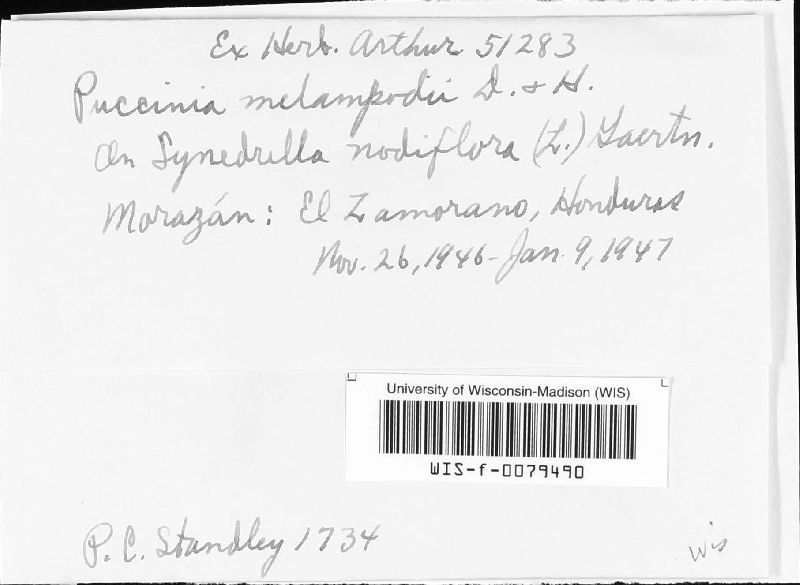 Ex Herb. Arthur 51283
Puccinia melampodii D. + H.
On Synedrella nodiflora (L.) Gaertn.
Morazán: El Zamorano, Honduras
Nov. 26, 1946 - Jan. 9, 1947
University of Wisconsin-Madison (WIS)
WIS-f-0079490
P. C. Standley 1734
Wis